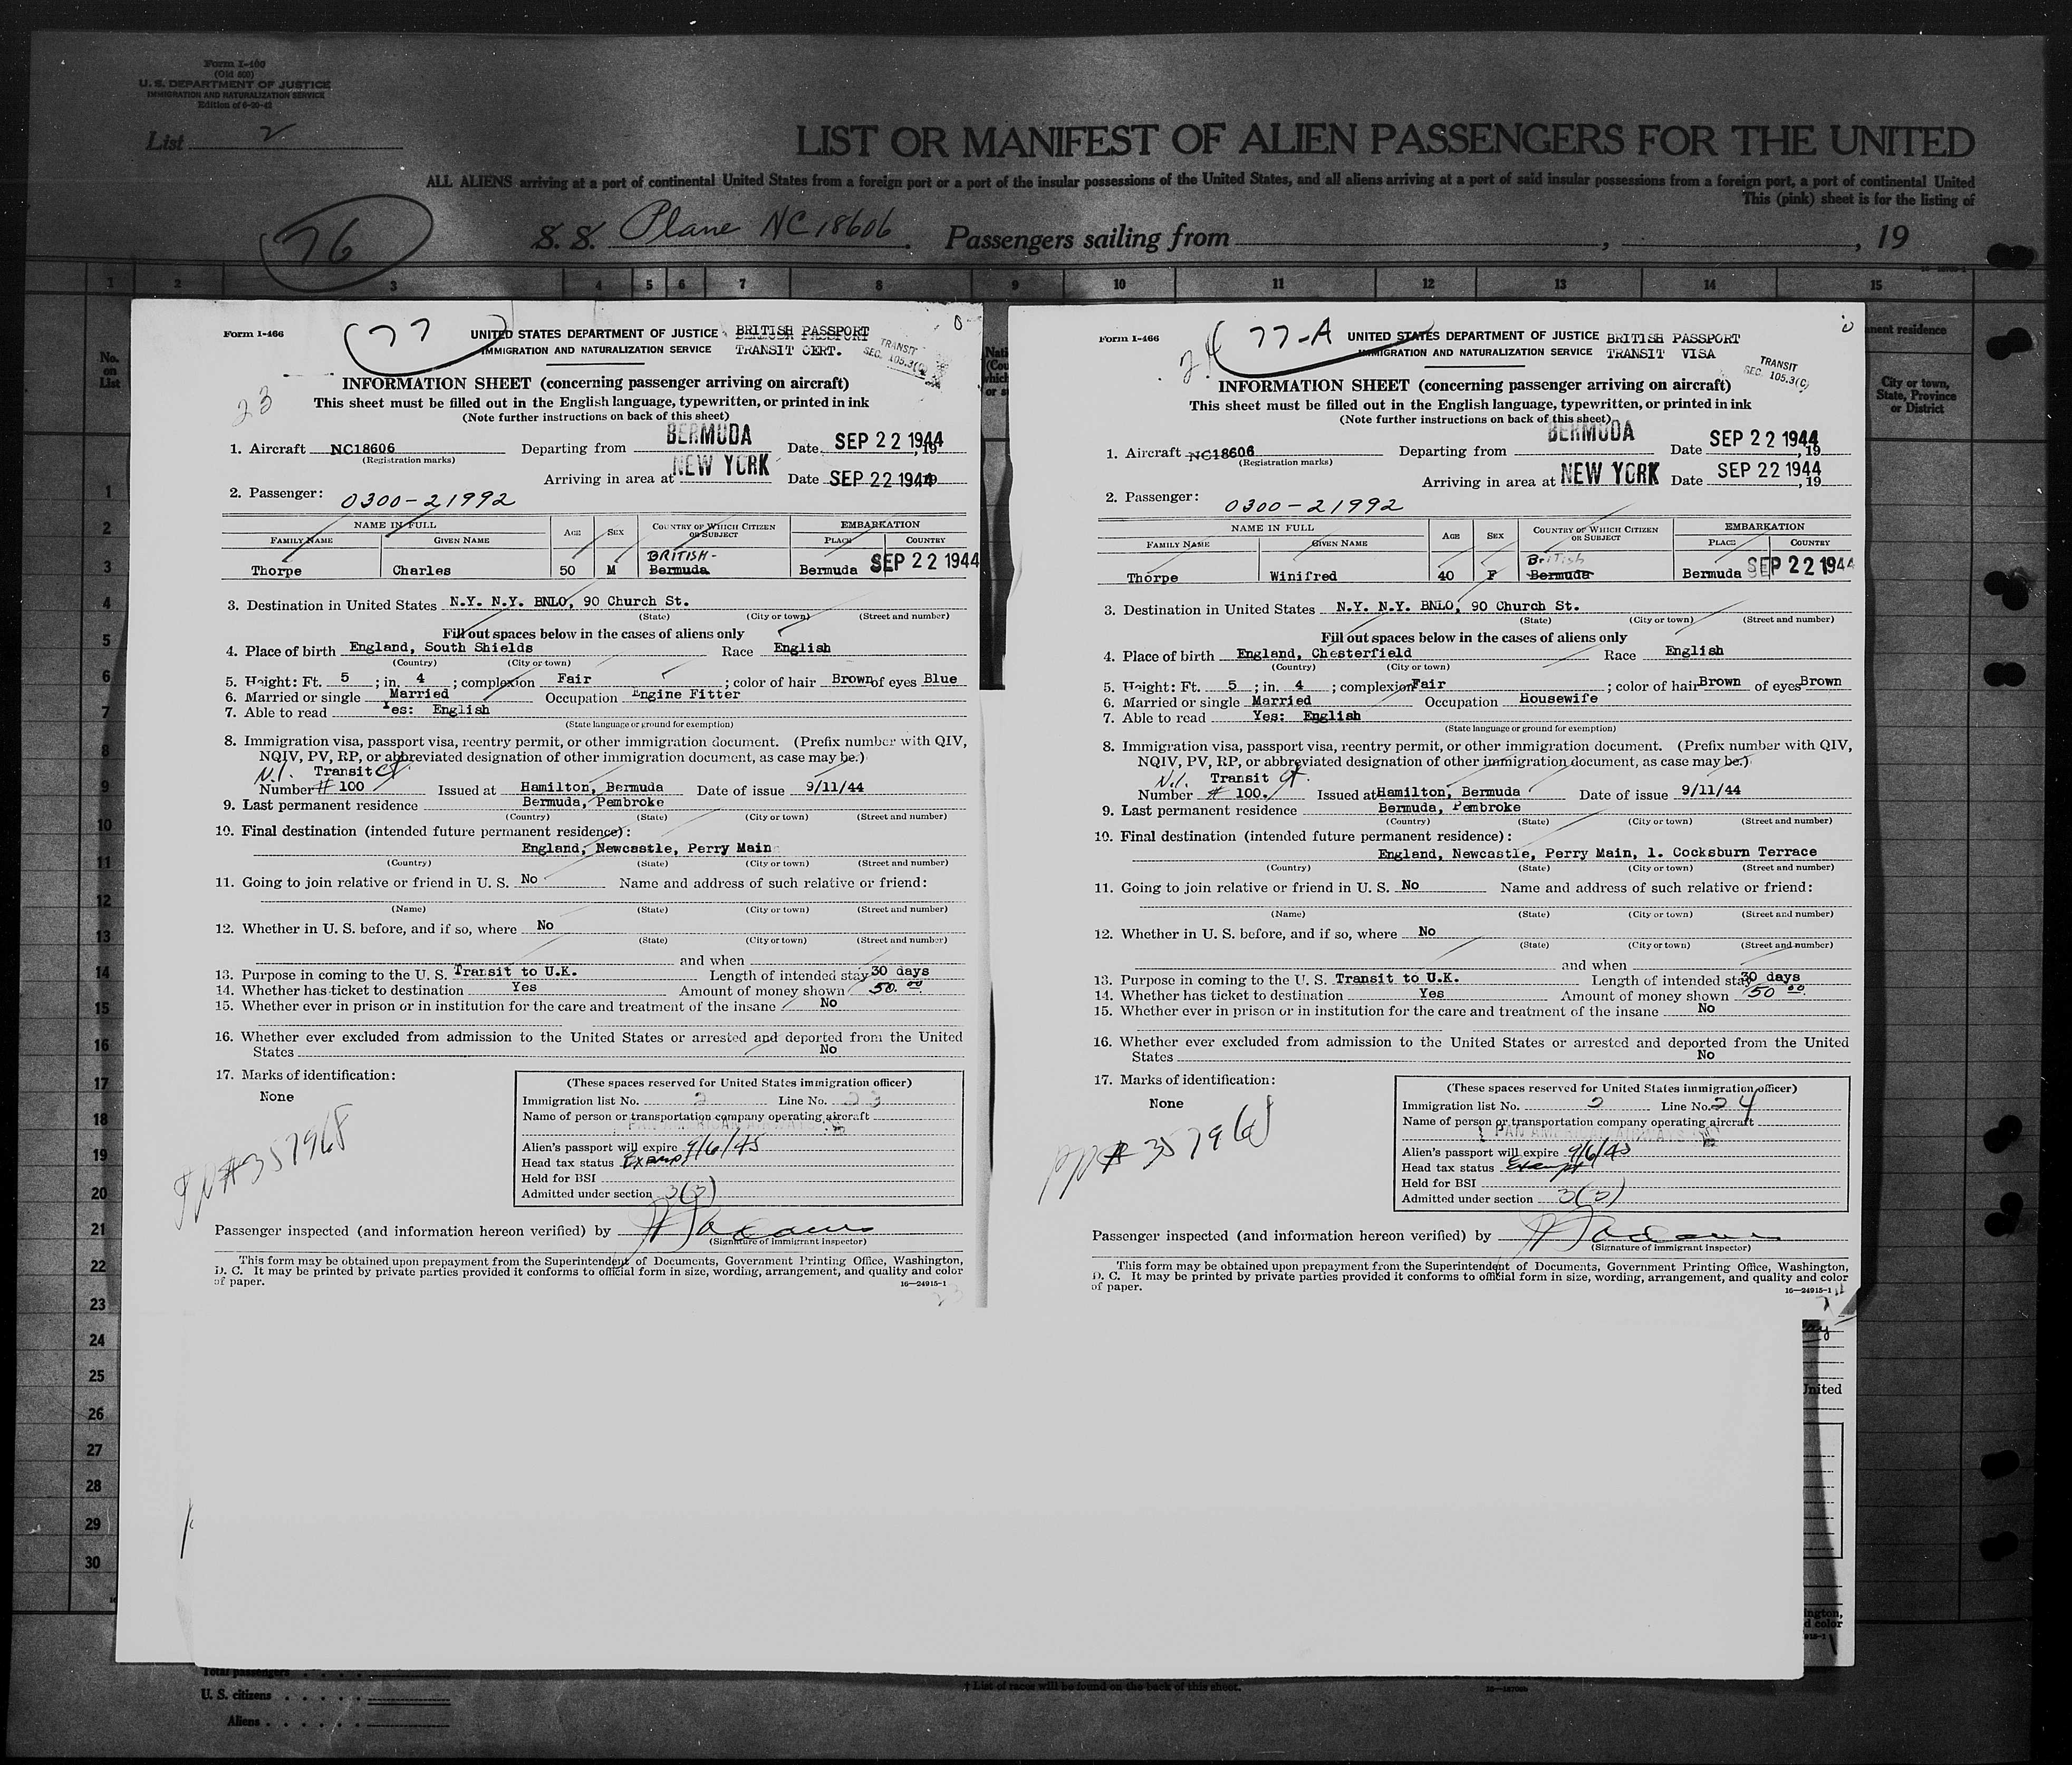 Form I-400
(Old 500)
U. S. DEPARTMENT OF JUSTICE
IMMIGRATION AND NATURALIZATION SERVICE
Edition of 6-20-42
List 2
LIST OR MANIFEST OF ALIEN PASSENGERS FOR THE UNITED
ALL ALIENS arriving at a port of continental United States from a foreign port or a port of the insular possessions of the United States, and all aliens arriving at a port of said insular possessions from a foreign port, a port of continental United
This (pink) sheet is for the listing of
76
S. S. Plane NC 18606. Passengers sailing from , , 19
1 2 3 4 5 6 7 8 9 10 11 12 13 14 15
No. on List
1
2
3
4
5
6
7
8
9
10
11
12
13
14
15
16
17
18
19
20
21
22
23
24
25
26
27
28
29
30
Form I-466
77
UNITED STATES DEPARTMENT OF JUSTICE BRITISH PASSPORT
IMMIGRATION AND NATURALIZATION SERVICE TRANSIT CERT.
TRANSIT
SEC. 105.3(C)
23
INFORMATION SHEET (concerning passenger arriving on aircraft)
This sheet must be filled out in the English language, typewritten, or printed in ink
(Note further instructions on back of this sheet)
1. Aircraft NC18606 Departing from BERMUDA Date SEP 22 1944, 19
(Registration marks)
Arriving in area at NEW YORK Date SEP 22 1944 19
2. Passenger: 0300-21992
NAME IN FULL AGE SEX COUNTRY OF WHICH CITIZEN OR SUBJECT EMBARKATION
FAMILY NAME GIVEN NAME PLACE COUNTRY
BRITISH-
Thorpe Charles 50 M Bermuda Bermuda SEP 22 1944
3. Destination in United States N.Y. N.Y. BNLO, 90 Church St.
(State) (City or town) (Street and number)
Fill out spaces below in the cases of aliens only
4. Place of birth England, South Shields Race English
(Country) (City or town)
5. Height: Ft. 5 ; in. 4 ; complexion Fair ; color of hair Brown of eyes Blue
6. Married or single Married Occupation Engine Fitter
7. Able to read Yes: English
(State language or ground for exemption)
8. Immigration visa, passport visa, reentry permit, or other immigration document. (Prefix number with QIV,
NQIV, PV, RP, or abbreviated designation of other immigration document, as case may be.)
N.I. Transit Ct
Number # 100 Issued at Hamilton, Bermuda Date of issue 9/11/44
9. Last permanent residence Bermuda, Pembroke
(Country) (State) (City or town) (Street and number)
10. Final destination (intended future permanent residence):
England, Newcastle, Perry Main
(Country) (State) (City or town) (Street and number)
11. Going to join relative or friend in U. S. No Name and address of such relative or friend:
(Name) (State) (City or town) (Street and number)
12. Whether in U. S. before, and if so, where No
(State) (City or town) (Street and number)
and when
13. Purpose in coming to the U. S. Transit to U.K. Length of intended stay 30 days
14. Whether has ticket to destination Yes Amount of money shown 50.00
15. Whether ever in prison or in institution for the care and treatment of the insane No
16. Whether ever excluded from admission to the United States or arrested and deported from the United
States No
17. Marks of identification:
None
PP#357968
(These spaces reserved for United States immigration officer)
Immigration list No. 2 Line No. 23
Name of person or transportation company operating aircraft
PAN AMERICAN AIRWAYS
Alien's passport will expire 9/6/45
Head tax status Exempt
Held for BSI
Admitted under section 3(3)
Passenger inspected (and information hereon verified) by
(Signature of immigrant inspector)
This form may be obtained upon prepayment from the Superintendent of Documents, Government Printing Office, Washington,
D. C. It may be printed by private parties provided it conforms to official form in size, wording, arrangement, and quality and color
of paper.
16—24915-1
23
Form I-466
24
77-A
UNITED STATES DEPARTMENT OF JUSTICE BRITISH PASSPORT
IMMIGRATION AND NATURALIZATION SERVICE TRANSIT VISA
TRANSIT
SEC. 105.3(C)
INFORMATION SHEET (concerning passenger arriving on aircraft)
This sheet must be filled out in the English language, typewritten, or printed in ink
(Note further instructions on back of this sheet)
1. Aircraft NC18606 Departing from BERMUDA Date SEP 22 1944, 19
(Registration marks)
Arriving in area at NEW YORK Date SEP 22 1944, 19
2. Passenger: 0300-21992
NAME IN FULL AGE SEX COUNTRY OF WHICH CITIZEN OR SUBJECT EMBARKATION
FAMILY NAME GIVEN NAME PLACE COUNTRY
British
Thorpe Winifred 40 F Bermuda Bermuda SEP 22 1944
3. Destination in United States N.Y. N.Y. BNLO, 90 Church St.
(State) (City or town) (Street and number)
Fill out spaces below in the cases of aliens only
4. Place of birth England, Chesterfield Race English
(Country) (City or town)
5. Height: Ft. 5 ; in. 4 ; complexion Fair ; color of hair Brown of eyes Brown
6. Married or single Married Occupation Housewife
7. Able to read Yes: English
(State language or ground for exemption)
8. Immigration visa, passport visa, reentry permit, or other immigration document. (Prefix number with QIV,
NQIV, PV, RP, or abbreviated designation of other immigration document, as case may be.)
N.I. Transit Ct.
Number # 100. Issued at Hamilton, Bermuda Date of issue 9/11/44
9. Last permanent residence Bermuda, Pembroke
(Country) (State) (City or town) (Street and number)
10. Final destination (intended future permanent residence):
England, Newcastle, Perry Main, 1. Cocksburn Terrace
(Country) (State) (City or town) (Street and number)
11. Going to join relative or friend in U. S. No Name and address of such relative or friend:
(Name) (State) (City or town) (Street and number)
12. Whether in U. S. before, and if so, where No
(State) (City or town) (Street and number)
and when
13. Purpose in coming to the U. S. Transit to U.K. Length of intended stay 30 days
14. Whether has ticket to destination Yes Amount of money shown 50 00.
15. Whether ever in prison or in institution for the care and treatment of the insane No
16. Whether ever excluded from admission to the United States or arrested and deported from the United
States No
17. Marks of identification:
None
PP# 357968
(These spaces reserved for United States immigration officer)
Immigration list No. 2 Line No. 24
Name of person or transportation company operating aircraft
PAN AMERICAN AIRWAYS
Alien's passport will expire 9/6/45
Head tax status Exempt
Held for BSI
Admitted under section 3(3)
Passenger inspected (and information hereon verified) by
(Signature of immigrant inspector)
This form may be obtained upon prepayment from the Superintendent of Documents, Government Printing Office, Washington,
D. C. It may be printed by private parties provided it conforms to official form in size, wording, arrangement, and quality and color
of paper.
16—24915-1
nent residence
City or town,
State, Province
or District
United
ington,
d color
915-1
Total passengers
U. S. citizens
Aliens
† List of races will be found on the back of this sheet.